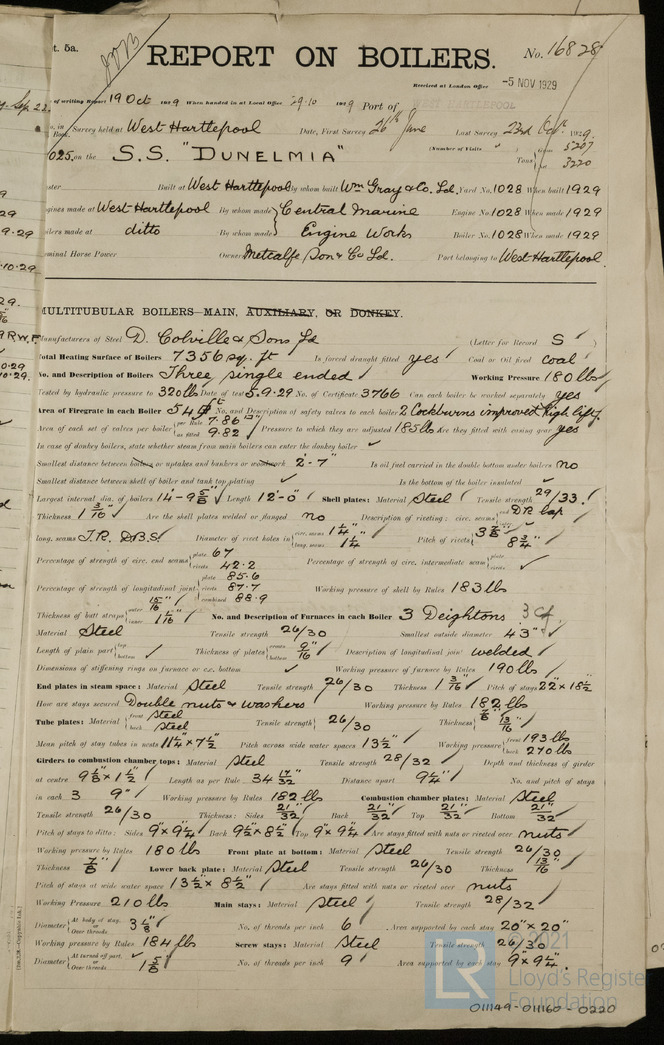 t. 5a.
REPORT ON BOILERS.
No. 16828
Received at London Office
-5 NOV 1929
WEST HARTLEPOOL
of writing Report 19 Oct 1929 When handed in at Local Office 29.10 1929 Port of
Survey held at West Hartlepool Date, First Survey 26th June Last Survey 23rd Oct 1929
(Number of Visits
025, on the S.S. "DUNELMIA" Tons Gross 5207
Net 3220
Built at West Hartlepool By whom built Wm Gray & Co. Ld. Yard No. 1028 When built 1929
gines made at West Hartlepool By whom made Central Marine Engine No. 1028 When made 1929
ilers made at ditto By whom made Engine Works Boiler No. 1028 When made 1929
ominal Horse Power Owners Metcalfe Son & Co Ld. Port belonging to West Hartlepool
MULTITUBULAR BOILERS—MAIN, AUXILIARY, OR DONKEY.
Manufacturers of Steel D. Colville & Sons Ld (Letter for Record S )
Total Heating Surface of Boilers 7356 sq. ft Is forced draught fitted yes Coal or Oil fired coal
No. and Description of Boilers Three single ended Working Pressure 180 lbs
Tested by hydraulic pressure to 320 lbs Date of test 5.9.29 No. of Certificate 3766 Can each boiler be worked separately yes
Area of Firegrate in each Boiler 54 No. and Description of safety valves to each boiler 2 Cockburns improved high lift
Area of each set of valves per boiler per Rule 7.86 □" as fitted 9.82 Pressure to which they are adjusted 185 lb Are they fitted with easing gear yes
In case of donkey boilers, state whether steam from main boilers can enter the donkey boiler ✓
Smallest distance between boilers or uptakes and bunkers or woodwork 2'-7" Is oil fuel carried in the double bottom under boilers no
Smallest distance between shell of boiler and tank top plating ✓ Is the bottom of the boiler insulated ✓
Largest internal dia. of boilers 14'-9 5/8" Length 12'-0" Shell plates: Material Steel Tensile strength 29/33
Thickness 1 3/16" Are the shell plates welded or flanged no Description of riveting: circ. seams end DR lap
long. seams T.R. D.B.S. Diameter of rivet holes in circ. seams 1 1/4" long. seams 1 1/4" Pitch of rivets 8 3/4"
Percentage of strength of circ. end seams plate 67 rivets 42.2 Percentage of strength of circ. intermediate seam plate rivets ✓
Percentage of strength of longitudinal joint plate 85.6 rivets 87.7 combined 88.9 Working pressure of shell by Rules 183 lbs
Thickness of butt straps outer 15/16" inner 1 1/16" No. and Description of Furnaces in each Boiler 3 Deightons 3 cf.
Material Steel Tensile strength 26/30 Smallest outside diameter 43"
Length of plain part top bottom ✓ Thickness of plates crown bottom 9/16" Description of longitudinal joint welded
Dimensions of stiffening rings on furnace or c.c. bottom ✓ Working pressure of furnace by Rules 190 lbs
End plates in steam space: Material Steel Tensile strength 26/30 Thickness 1 3/16" Pitch of stays 22" x 18 1/2"
How are stays secured Double nuts & washers Working pressure by Rules 182 lbs
Tube plates: Material front Steel back Steel Tensile strength 26/30 Thickness 7/8" 13/16"
Mean pitch of stay tubes in nests 11 1/4" x 7 1/2" Pitch across wide water spaces 13 1/2" Working pressure front 193 lbs back 270 lbs
Girders to combustion chamber tops: Material Steel Tensile strength 28/32 Depth and thickness of girder
at centre 9 1/8" x 1 1/2" Length as per Rule 34 17/32" Distance apart 9 1/4" No. and pitch of stays
in each 3 9" Working pressure by Rules 182 lbs Combustion chamber plates: Material Steel
Tensile strength 26/30 Thickness: Sides 21/32" Back 21/32" Top 21/32" Bottom 21/32"
Pitch of stays to ditto: Sides 9" x 9 1/4" Back 9 1/2" x 8 1/2" Top 9" x 9 1/4" Are stays fitted with nuts or riveted over nuts
Working pressure by Rules 180 lbs Front plate at bottom: Material Steel Tensile strength 26/30
Thickness 7/8" Lower back plate: Material Steel Tensile strength 26/30 Thickness 13/16"
Pitch of stays at wide water space 13 1/2" x 8 1/2" Are stays fitted with nuts or riveted over nuts
Working Pressure 210 lbs Main stays: Material Steel Tensile strength 28/32
Diameter At body of stay, or Over threads 3 1/8" No. of threads per inch 6 Area supported by each stay 20" x 20"
Working pressure by Rules 184 lbs Screw stays: Material Steel Tensile strength 26/30
Diameter At turned off part, or Over threads 1 5/8" No. of threads per inch 9 Area supported by each stay 9" x 9 1/4"
© 2021
Lloyd's Register
Foundation
011149-011160-0220